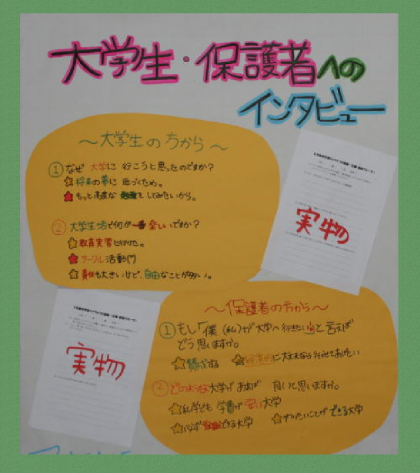 大学生・保護者への
インタビュー
～大学生の方から～
① なぜ 大学に 行こうと思ったのですか？
☆将来の夢に 近づくため。
☆もっと高度な 勉強 してみたいから。
② 大学生活で何が一番 楽しいですか？
☆教育実習に行けた。
☆サークル活動
☆責任も大きいけど、自由なことが多い。
実物
実物
～保護者の方から～
① もし「僕(私)が大学へ行きたい」と言えば
どう思いますか。
☆賛成する ☆将来的に
② どのような大学が あれば 良いと思いますか。
☆私学でも 学費が安い大学
☆いろいろ できる大学 ☆やりたいことが できる大学